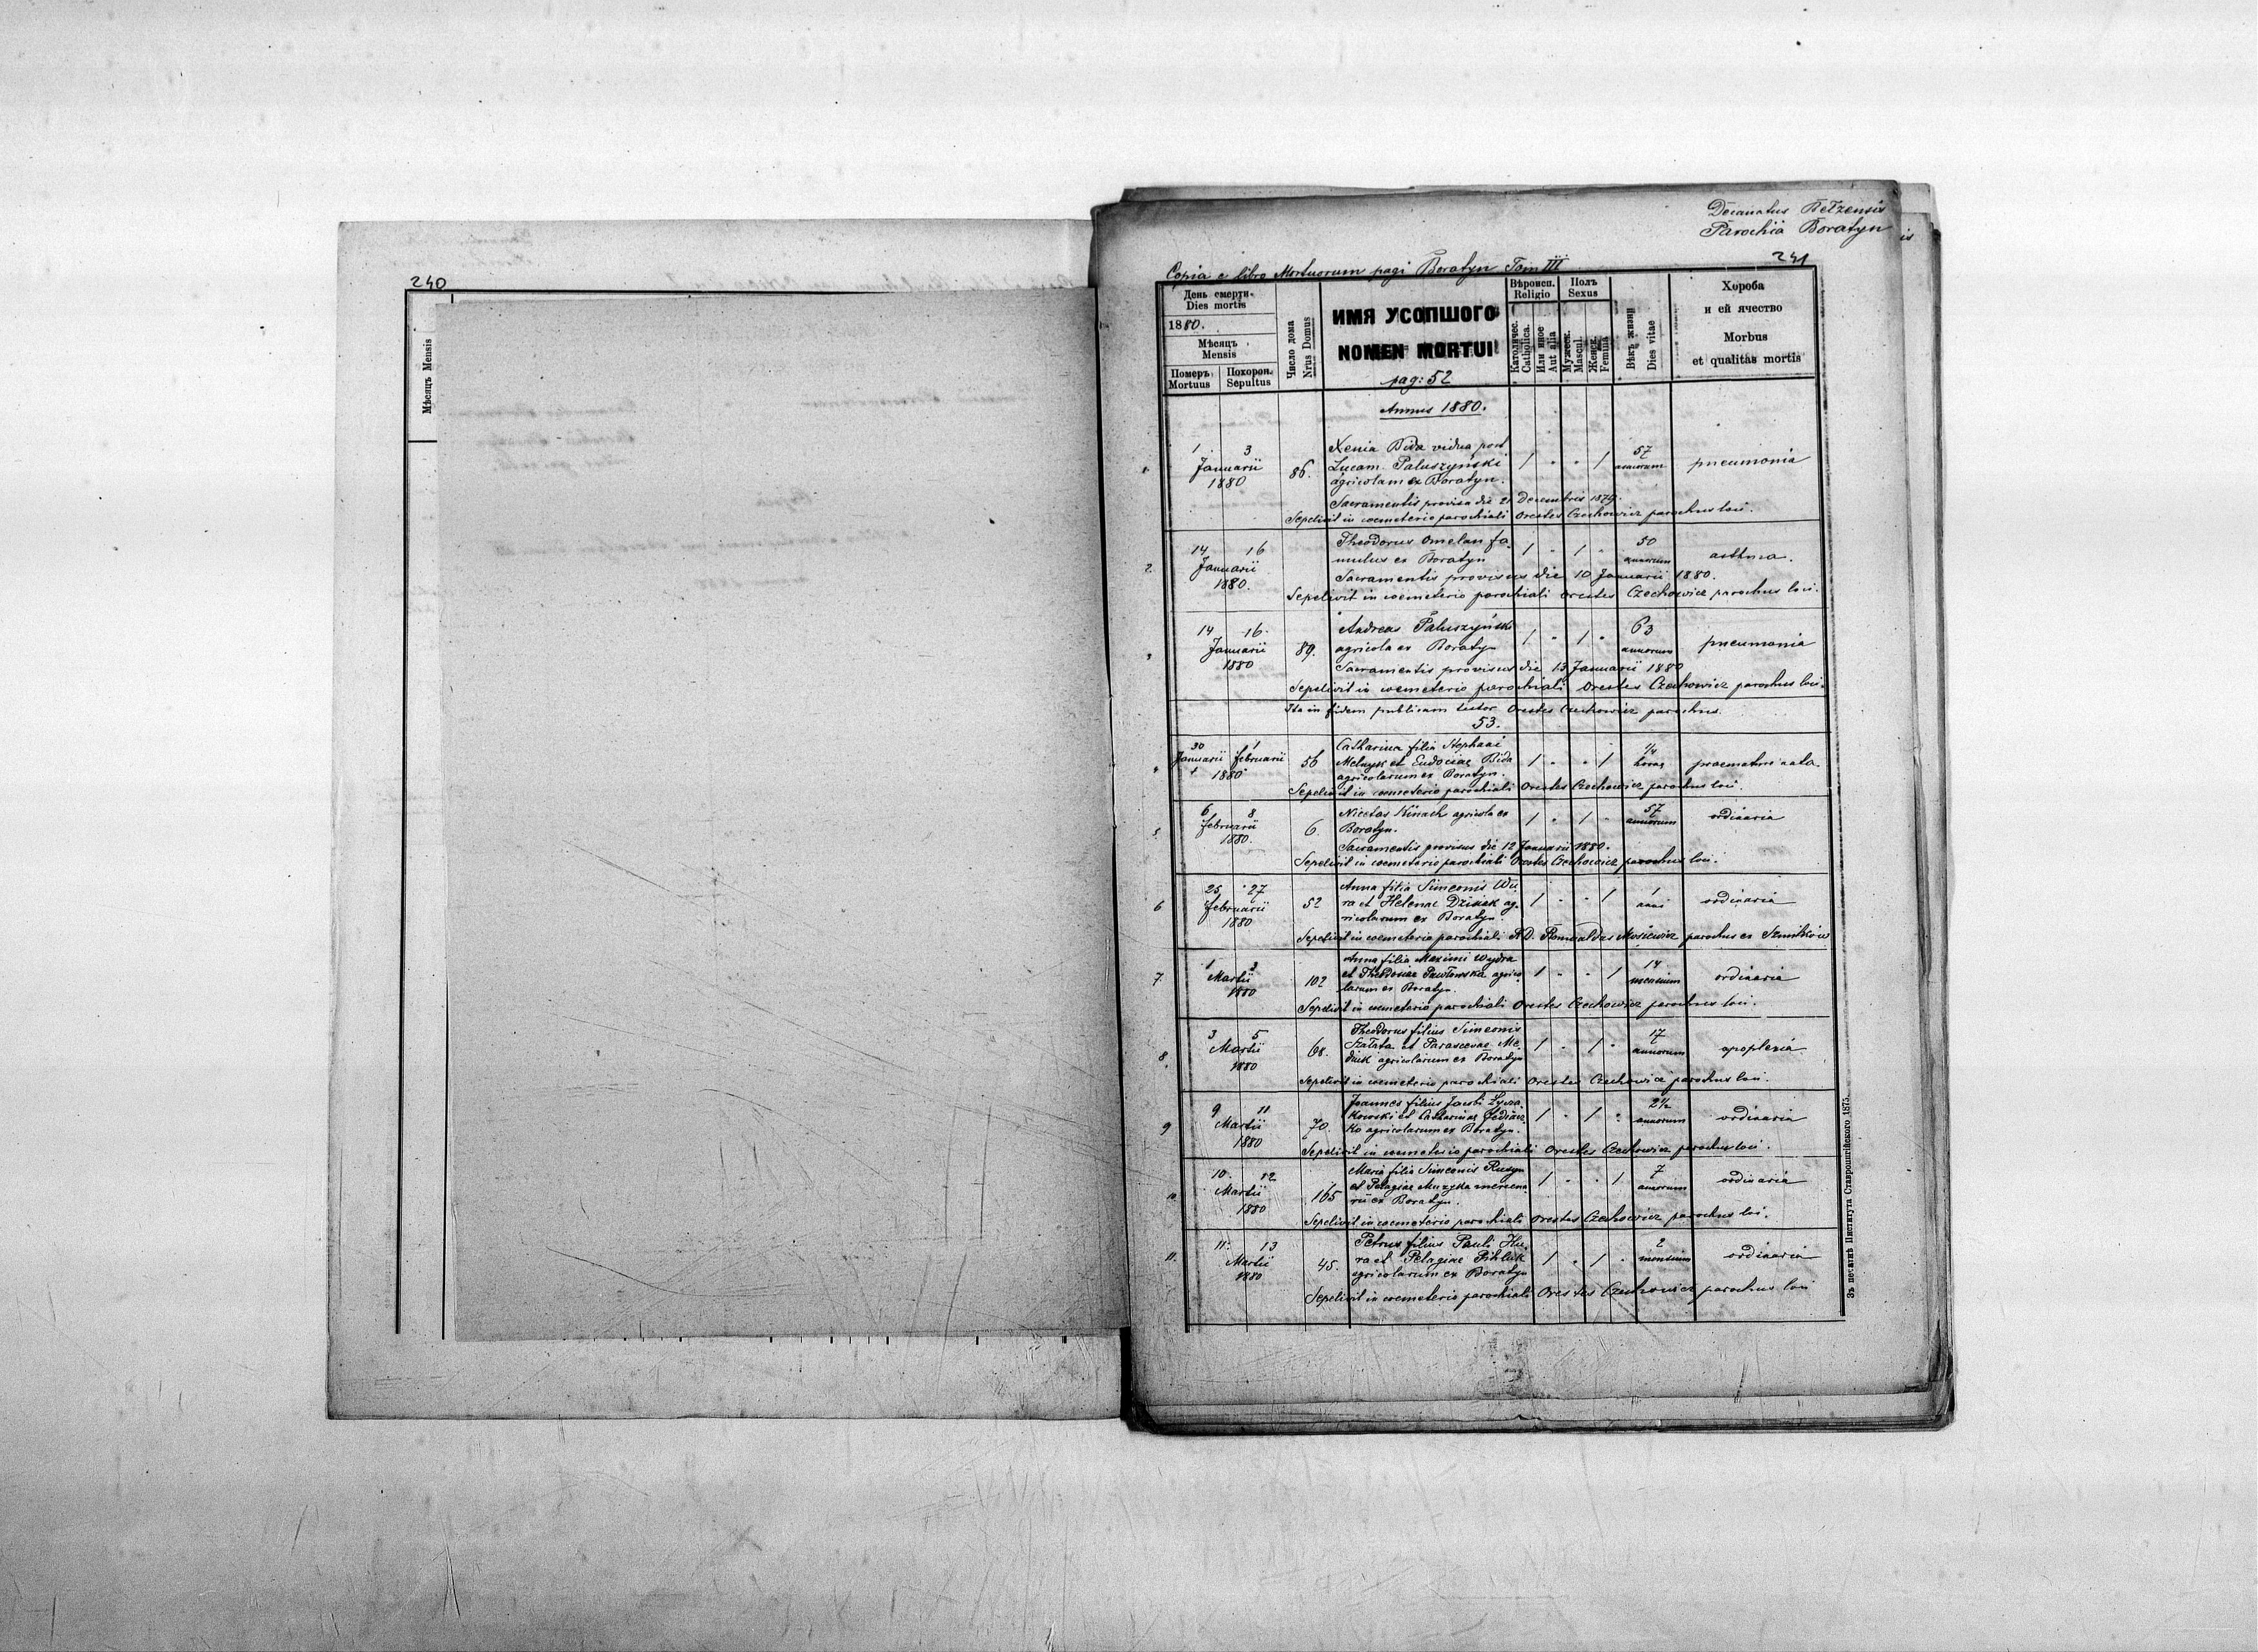 240
Мѣсяцъ Mensis
Decanatus Betzensis
Parochia Boratyn
241
Copia e libro Mortuorum pagi Boratyn Tom III
День смерти
Dies mortis
1880.
Мѣсяцъ
Mensis
Померъ
Mortuus
Похорон.
Sepultus
Число дома
Nrus Domus
ИМЯ УСОПШОГО
NOMEN MORTUI
pag: 52
Вѣроисп.
Religio
Католичес.
Catholica.
Или иное
Aut alia
Полъ
Sexus
Мужеск.
Mascul.
Женск.
Femina
Вѣкъ жизни
Dies vitae
Хороба
и ей ячество
Morbus
et qualitas mortis
Annus 1880.
1 1 3 Januarii 1880 86. Xenia Bida vidua post 1 " " 1 57 annorum pneumonia
Lucam Paluszyński
agricolam ex Boratyn.
Sacramentis provisa die 21 Decembris 1879.
Sepelivit in coemeterio parochiali Orestes Czechowicz parochus loci.
2 14 16 Januarii 1880. Theodorus Omelan fa- 1 " 1 " 50 annorum asthma.
mulus ex Boratyn
Sacramentis provisus die 10 Januarii 1880.
Sepelivit in coemeterio parochiali Orestes Czechowicz parochus loci.
3 14 16. Januarii 1880 89. Andreas Paluszyński 1 " 1 " 63 annorum pneumonia
agricola ex Boratyn
Sacramentis provisus die 13 Januarii 1880
Sepelivit in coemeterio parochiali Orestes Czechowicz parochus loci.
Ita in fidem publicam testor Orestes Czechowicz parochus.
53.
4 30 Januarii 1 februarii 1880 56 Catharina filia Stephani 1 " " 1 1/4 horae
Melnyk et Eudociae Bida
agricolarum ex Boratyn.
Sepelivit in coemeterio parochiali Orestes Czechowicz parochus loci.
5 6 8 februarii 1880. 6. Nicetas Kinach agricola ex 1 " 1 " 57 annorum ordinaria
Boratyn.
Sacramentis provisus die 12 Januarii 1880.
Sepelivit in coemeterio parochiali Orestes Czechowicz parochus loci.
6 25 27 februarii 1880 52 Anna filia Simeonis 1 " " 1 1 anni ordinaria
ra et Helenae Dziuak ag-
ricolarum ex Boratyn.
Sepelivit in coemeterio parochiali R.D. Romualdus Mosiewicz parochus ex
7. 1 3 Martii 1880 102 Anna filia Maximi Wydra 1 " " 1 14 mensium ordinaria
et Theodosiae Pawłowska agrico-
larum ex Boratyn.
Sepelivit in coemeterio parochiali Orestes Czechowicz parochus loci.
8. 3 5 Martii 1880 68. Theodorus filius Simeonis 1 " 1 " 17 annorum apoplexia
et Parascevae Me-
agricolarum ex Boratyn
Sepelivit in coemeterio parochiali Orestes Czechowicz parochus loci.
9 9 11 Martii 1880 70 Joannes filius Jacobi Łycza- 1 " 1 " 2½ annorum ordinaria
kowski et Catharinae
ko agricolarum ex Boratyn.
Sepelivit in coemeterio parochiali Orestes Czechowicz parochus loci.
10. 10. 12 Martii 1880 165 Maria filia Simeonis Rusyn 1 " " 1 7 annorum ordinaria
et Pelagiae Muzyka mercena-
rii ex Boratyn.
Sepelivit in coemeterio parochiali Orestes Czechowicz parochus loci.
11. 11. 13 Martii 1880 45. Petrus filius Pauli Hu- 1 " 1 " 2 mensium ordinaria
ra et Pelagiae
agricolarum ex Boratyn
Sepelivit in coemeterio parochiali Orestes Czechowicz parochus loci
Зъ печатнѣ Института Ставропигійского 1875.